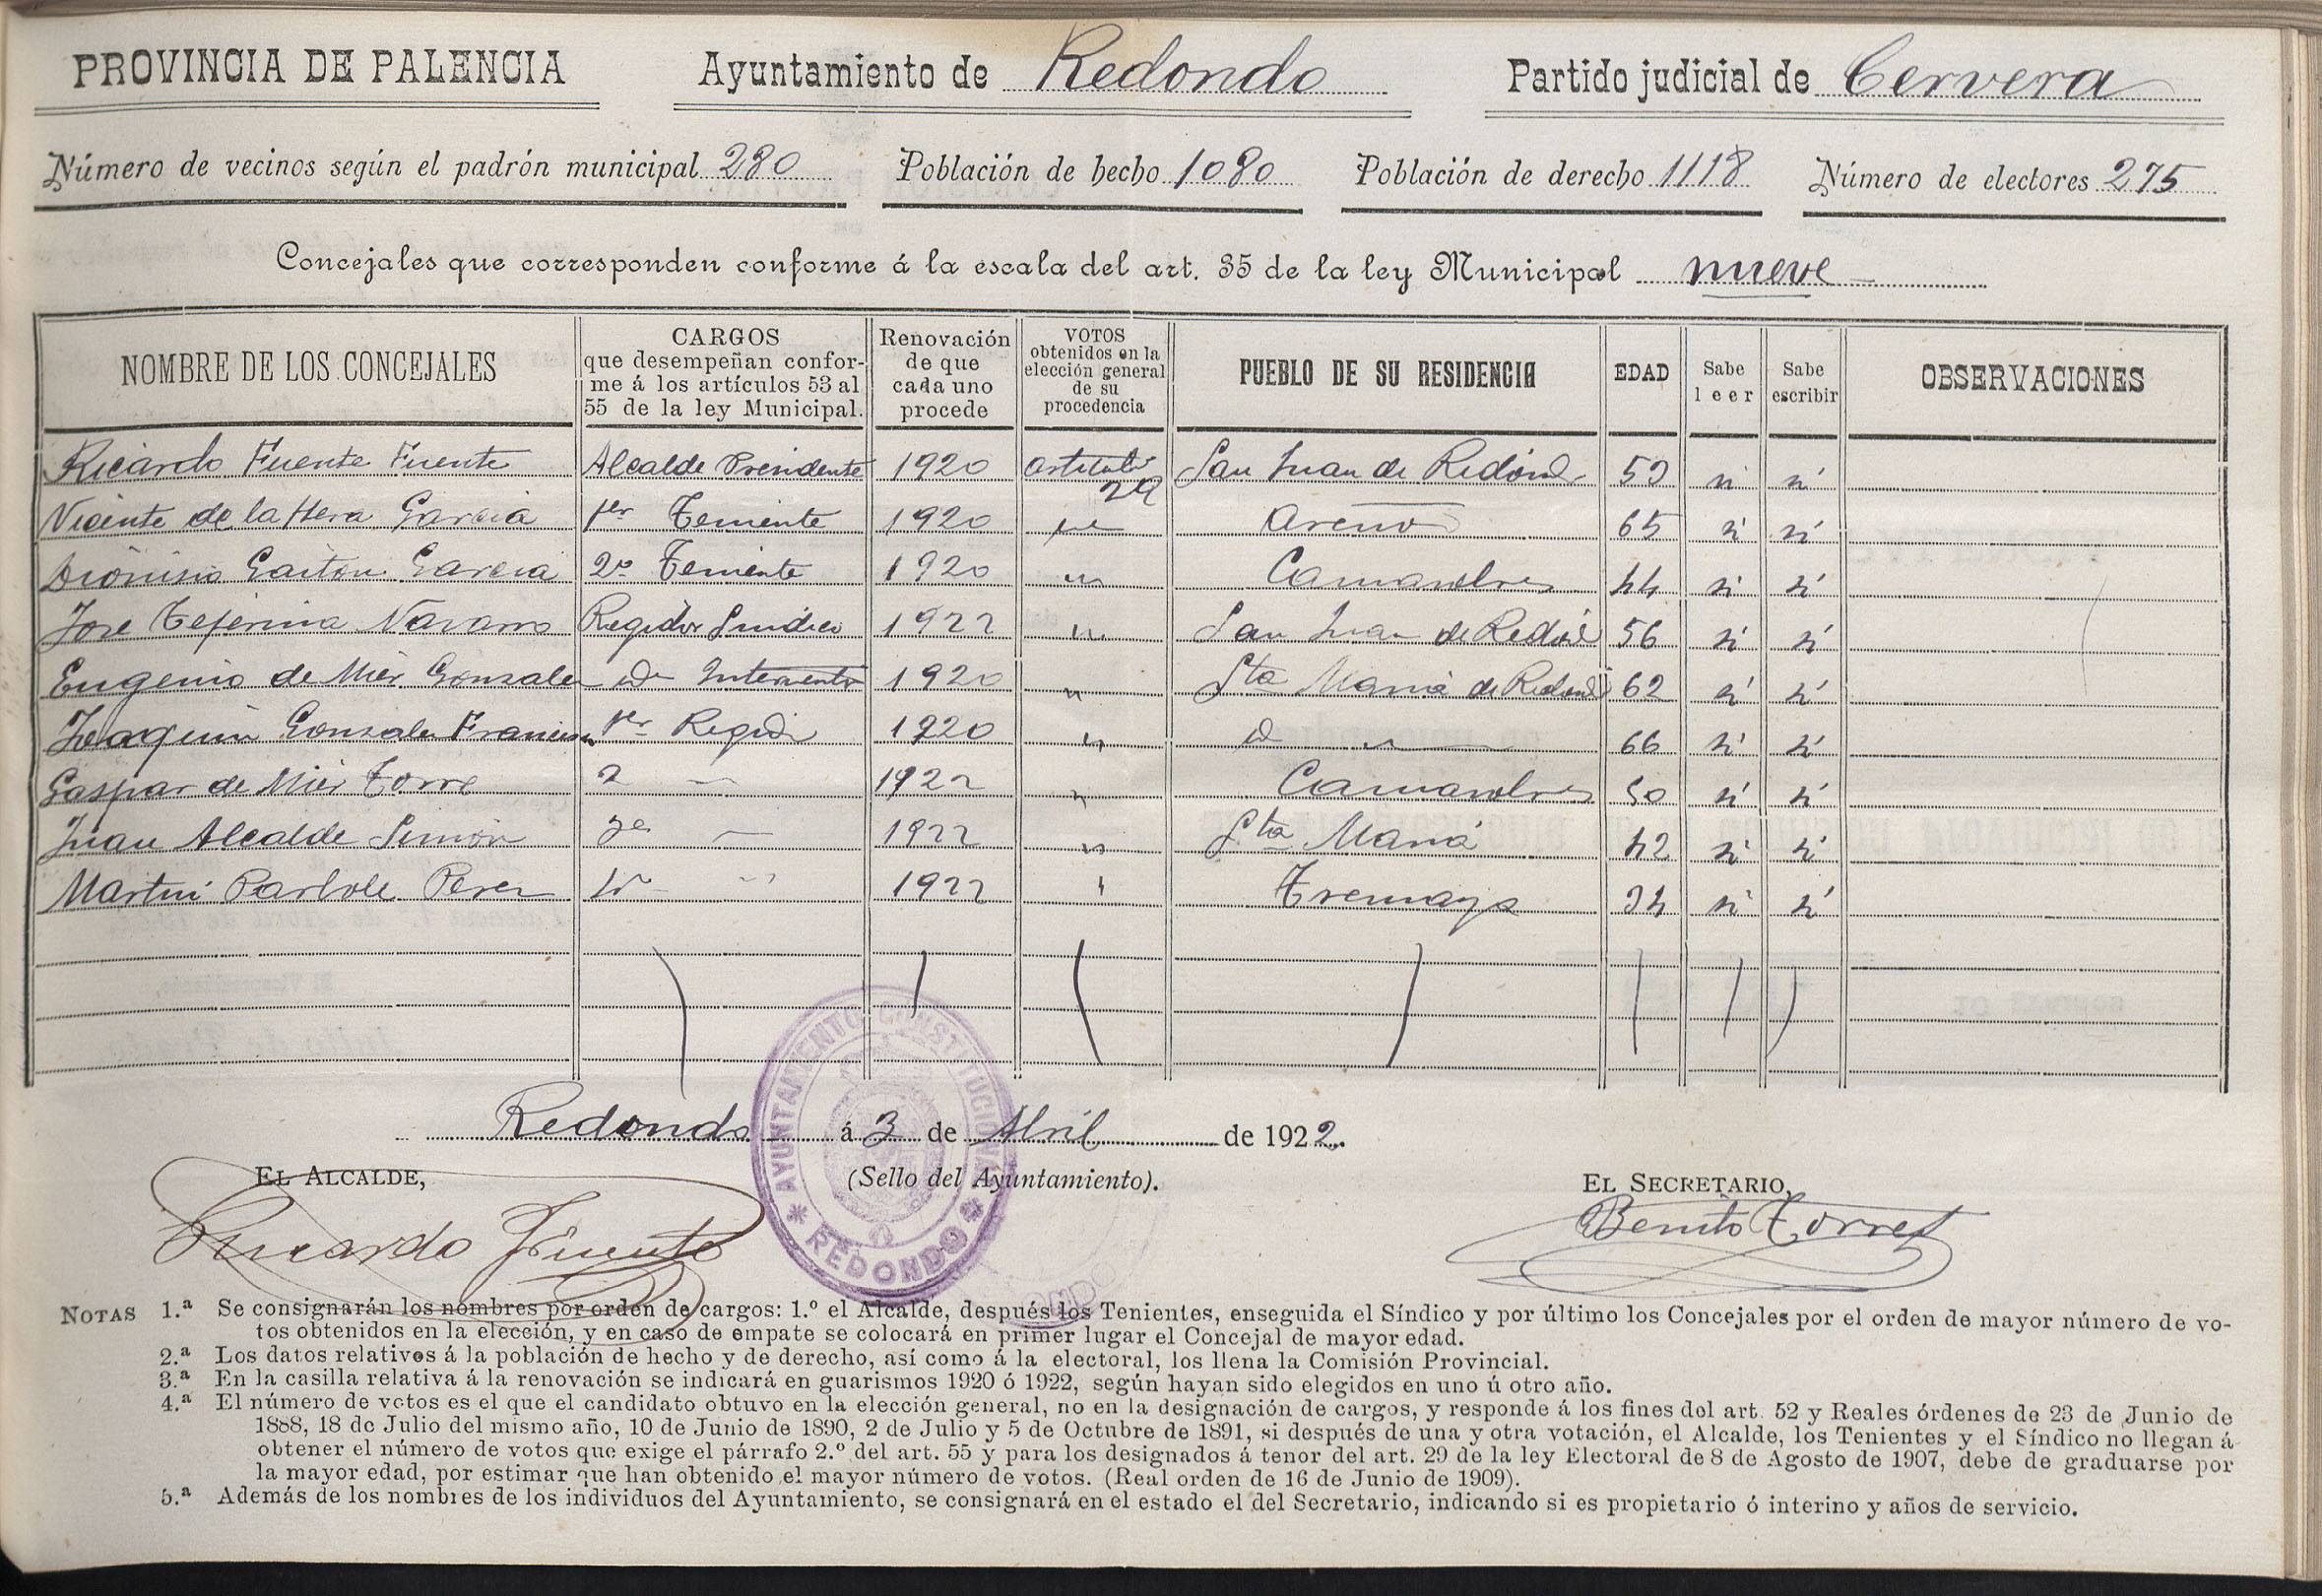 PROVINCIA DE PALENCIA Ayuntamiento de Redondo Partido judicial de Cervera
Número de vecinos según el padrón municipal 280 Población de hecho 1080 Población de derecho 1118 Número de electores 275
Concejales que corresponden conforme á la escala del art. 35 de la ley Municipal nueve
NOMBRE DE LOS CONCEJALES
CARGOS
que desempeñan confor-
me á los artículos 53 al
55 de la ley Municipal.
Renovación
de que
cada uno
procede
VOTOS
obtenidos en la
elección general
de su
procedencia
PUEBLO DE SU RESIDENCIA
EDAD
Sabe
leer
Sabe
escribir
OBSERVACIONES
Ricardo Fuente Fuente Alcalde Presidente 1920 articulo 29 San Juan de Redondo 53 si si
Vicente de la Hera Garcia 1er Teniente 1920 " Areños 65 si si
Dionisio Gaiton Garcia 2º Teniente 1920 " 44 si si
Jose Ceferina Navarro Regidor Sindico 1922 " San Juan de Redond 56 si si
Eugenio de Mier Gonzalez id Interventor 1920 " Sta Maria de Redond 62 si si
Joaquin Gonzalez Francisco 1er Regidr 1920 " id 66 si si
Gaspar de Mier Torre 2 — 1922 " 50 si si
Juan Alcalde Simón 3er — 1922 " Sta Maria 42 si si
Martin Perez " 1922 " Tremaya 34 si si
Redondo á 3 de Abril de 1922.
EL ALCALDE, (Sello del Ayuntamiento). EL SECRETARIO,
Ricardo Fuente Benito Torres
AYUNTAMIENTO CONSTITUCIONAL
* REDONDO *
NOTAS 1.ª Se consignarán los nombres por orden de cargos: 1.º el Alcalde, después los Tenientes, enseguida el Síndico y por último los Concejales por el orden de mayor número de vo-
tos obtenidos en la elección, y en caso de empate se colocará en primer lugar el Concejal de mayor edad.
2.ª Los datos relativos á la población de hecho y de derecho, así como á la electoral, los llena la Comisión Provincial.
3.ª En la casilla relativa á la renovación se indicará en guarismos 1920 ó 1922, según hayan sido elegidos en uno ú otro año.
4.ª El número de votos es el que el candidato obtuvo en la elección general, no en la designación de cargos, y responde á los fines del art. 52 y Reales órdenes de 23 de Junio de
1888, 18 de Julio del mismo año, 10 de Junio de 1890, 2 de Julio y 5 de Octubre de 1891, si después de una y otra votación, el Alcalde, los Tenientes y el Síndico no llegan á
obtener el número de votos que exige el párrafo 2.º del art. 55 y para los designados á tenor del art. 29 de la ley Electoral de 8 de Agosto de 1907, debe de graduarse por
la mayor edad, por estimar que han obtenido el mayor número de votos. (Real orden de 16 de Junio de 1909).
5.ª Además de los nombres de los individuos del Ayuntamiento, se consignará en el estado el del Secretario, indicando si es propietario ó interino y años de servicio.